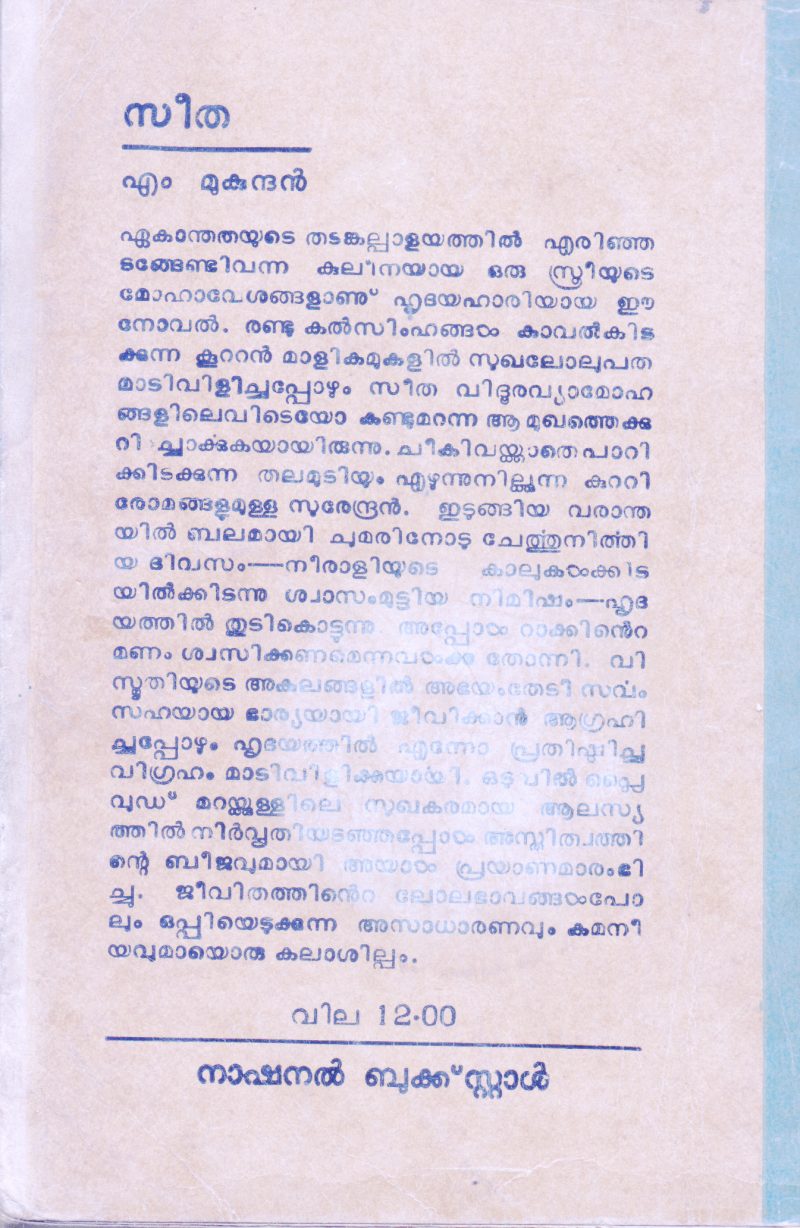 സീത
എം മുകുന്ദൻ
ഏകാന്തതയുടെ തടങ്കല്പാളയത്തിൽ എരിഞ്ഞ
ടങ്ങേണ്ടിവന്ന കുലീനയായ ഒരു സ്ത്രീയുടെ
മോഹാവേശങ്ങളാണു് ഹൃദയഹാരിയായ ഈ
നോവൽ. രണ്ടു കൽസിംഹങ്ങൾ കാവൽകിട
ക്കുന്ന കൂററൻ മാളികമുകളിൽ സുഖലോലുപത
മാടിവിളിച്ചപ്പോഴും സീത വിദൂരവ്യാമോഹ
ങ്ങളിലെവിടെയോ കണ്ടുമറന്ന ആ മുഖത്തെക്കു
റിച്ചോർക്കുകയായിരുന്നു. ചീകിവയ്ക്കാതെ പാറി
ക്കിടക്കുന്ന തലമുടിയും എഴുന്നുനില്ക്കുന്ന കുററി
രോമങ്ങളുമുള്ള സുരേന്ദ്രൻ. ഇടുങ്ങിയ വരാന്ത
യിൽ ബലമായി ചുമരിനോടു ചേർത്തുനിർത്തി
യ ദിവസം—നീരാളിയുടെ കാലുകൾക്കിട
യിൽക്കിടന്നു ശ്വാസംമുട്ടിയ നിമിഷം—ഹൃദ
യത്തിൽ തുടികൊട്ടുന്നു. അപ്പോൾ റാക്കിൻെറ
മണം ശ്വസിക്കണമെന്നവൾക്കു തോന്നി. വി
സ്മൃതിയുടെ അകലങ്ങളിൽ അഭയംതേടി സർവം
സഹയായ ഭാര്യയായി ജീവിക്കാൻ ആഗ്രഹി
ച്ചപ്പോഴും ഹൃദയത്തിൽ എന്നോ പ്രതിഷ്ഠിച്ച
വിഗ്രഹം മാടിവിളിക്കുയായി. ഒടുവിൽ പ്ലൈ
വുഡ് മറയ്ക്കുള്ളിലെ സുഖകരമായ ആലസ്യ
ത്തിൽ നിർവൃതിയടഞ്ഞപ്പോൾ അസ്തിത്വത്തി
ന്റെ ബീജവുമായി അയാൾ പ്രയാണമാരംഭി
ച്ചു. ജീവിതത്തിൻെറ ലോലഭാവങ്ങൾപോ
ലും ഒപ്പിയെടുക്കുന്ന അസാധാരണവും കമനീ
യവുമായൊരു കലാശില്പം.
വില 12·00
നാഷനൽ ബുക്ക് സ്റ്റാൾ